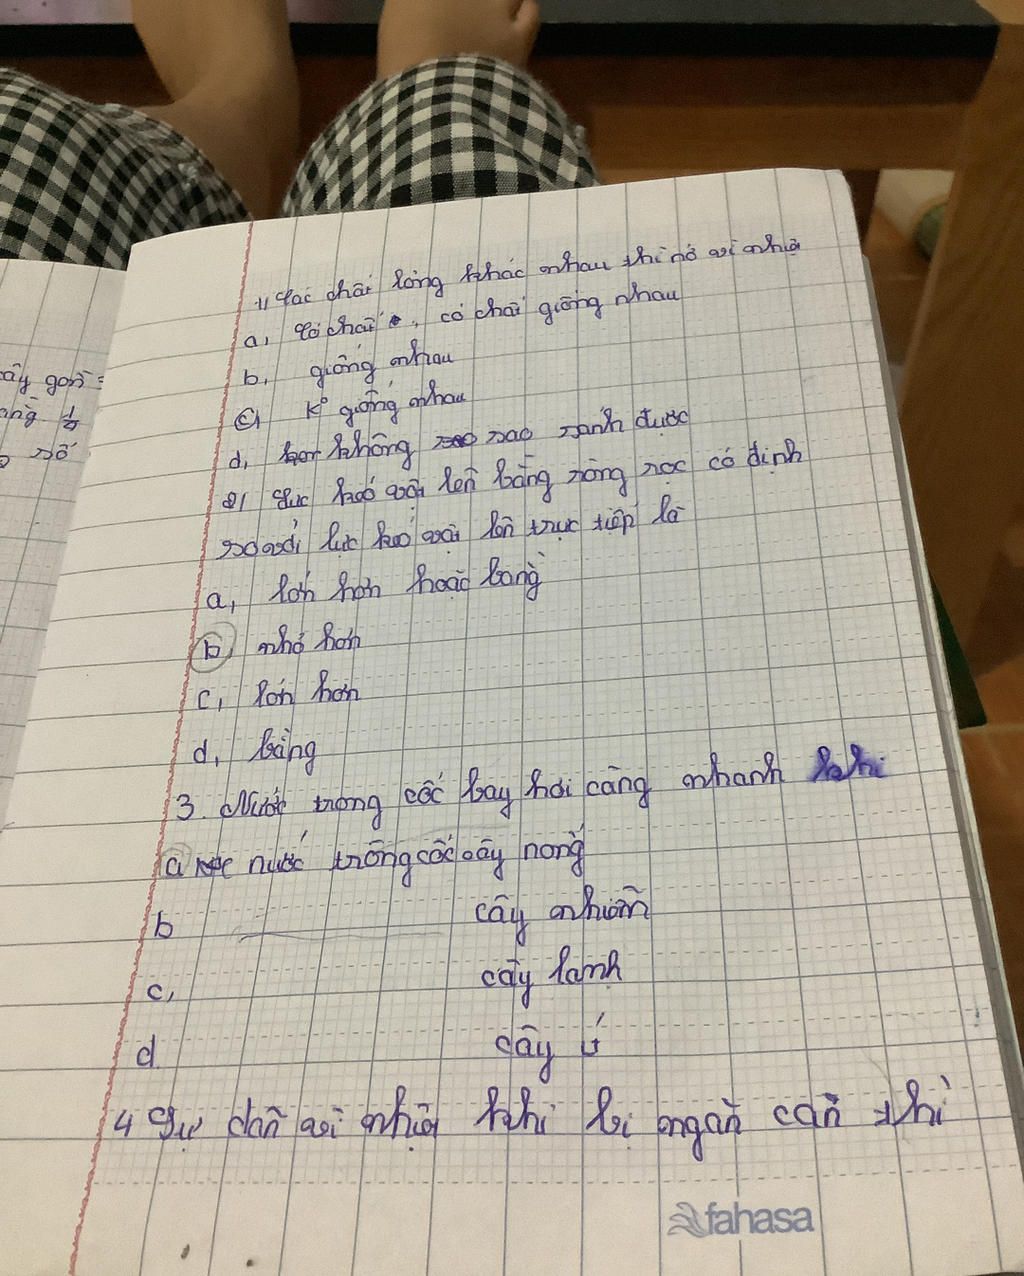 ây gồm =
1, Các chất lỏng khác nhau thì nở vì nhiệt
a, Có chất , có chất giống nhau
b, giống nhau
c, k° giống nhau
d, không sao sánh được
2/ Lực kéo vật lên bằng ròng rọc cố định
so với lực kéo vật lên trực tiếp là
a, lớn hơn hoặc bằng
b, nhỏ hơn
c, lớn hơn
d, bằng
3. Nước trong cốc bay hơi càng nhanh khi
a nước trong cốc cây nóng
b cây nhiều
c, cây lạnh
d cây ít
4 Sự dãn vì nhiệt khi bị ngăn cản thì
fahasa